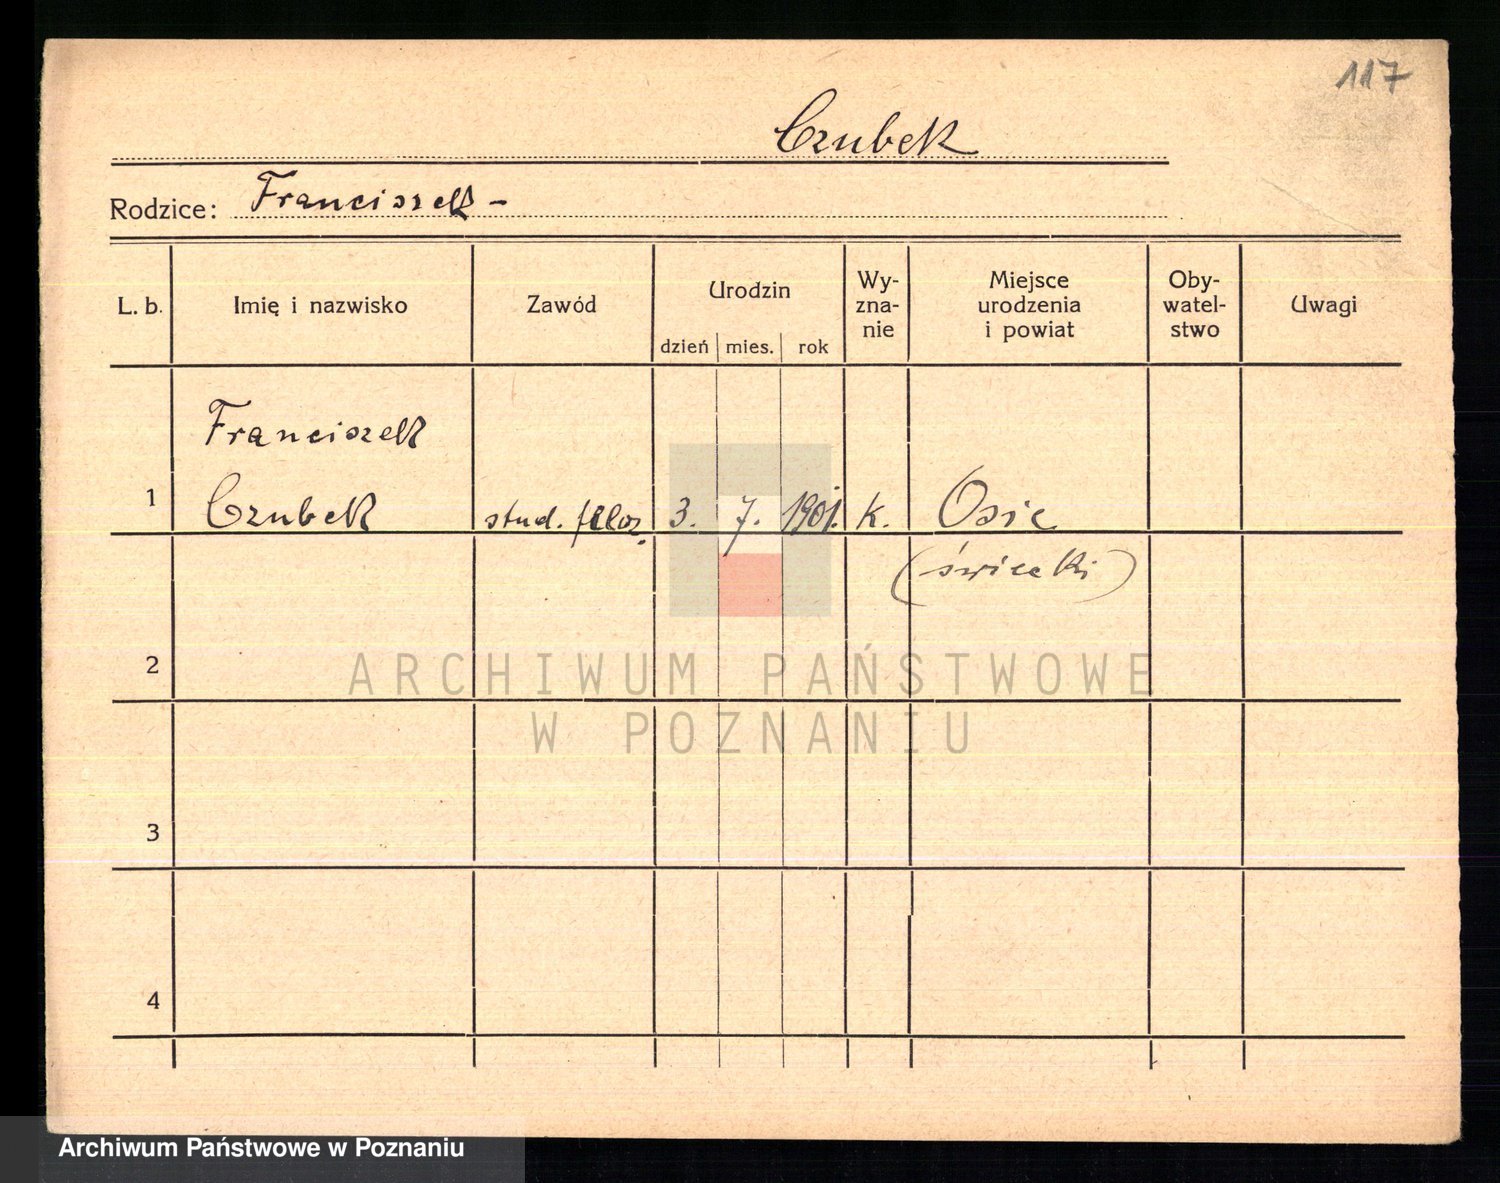 117
Czubek
Rodzice: Franciszek -
L. b.
Imię i nazwisko
Zawód
Urodzin
dzień mies. rok
Wy-
zna-
nie
Miejsce
urodzenia
i powiat
Oby-
watel-
stwo
Uwagi
Franciszek
1 Czubek stud. filoz. 3. 7. 1901. k. Osie
(świecki)
2
ARCHIWUM PAŃSTWOWE
W POZNANIU
3
4
Archiwum Państwowe w Poznaniu